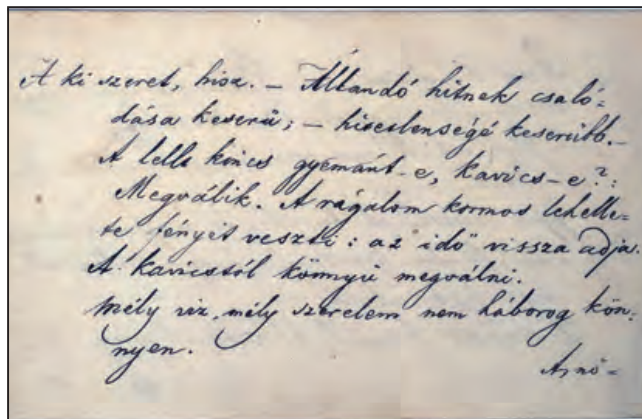 A ki szeret, hisz. – Állandó hitnek csaló-
dása keserü; – hiszlenségé keserübb. –
A lelke kincs gyémánt-e, kavics-e?:
Megválik. A rágalom kormos lehelle-
te fényét veszti: az idő vissza adja.
A kavicstól könnyü megválni.
mély viz, mély szerelem nem háborog kön-
nyen.